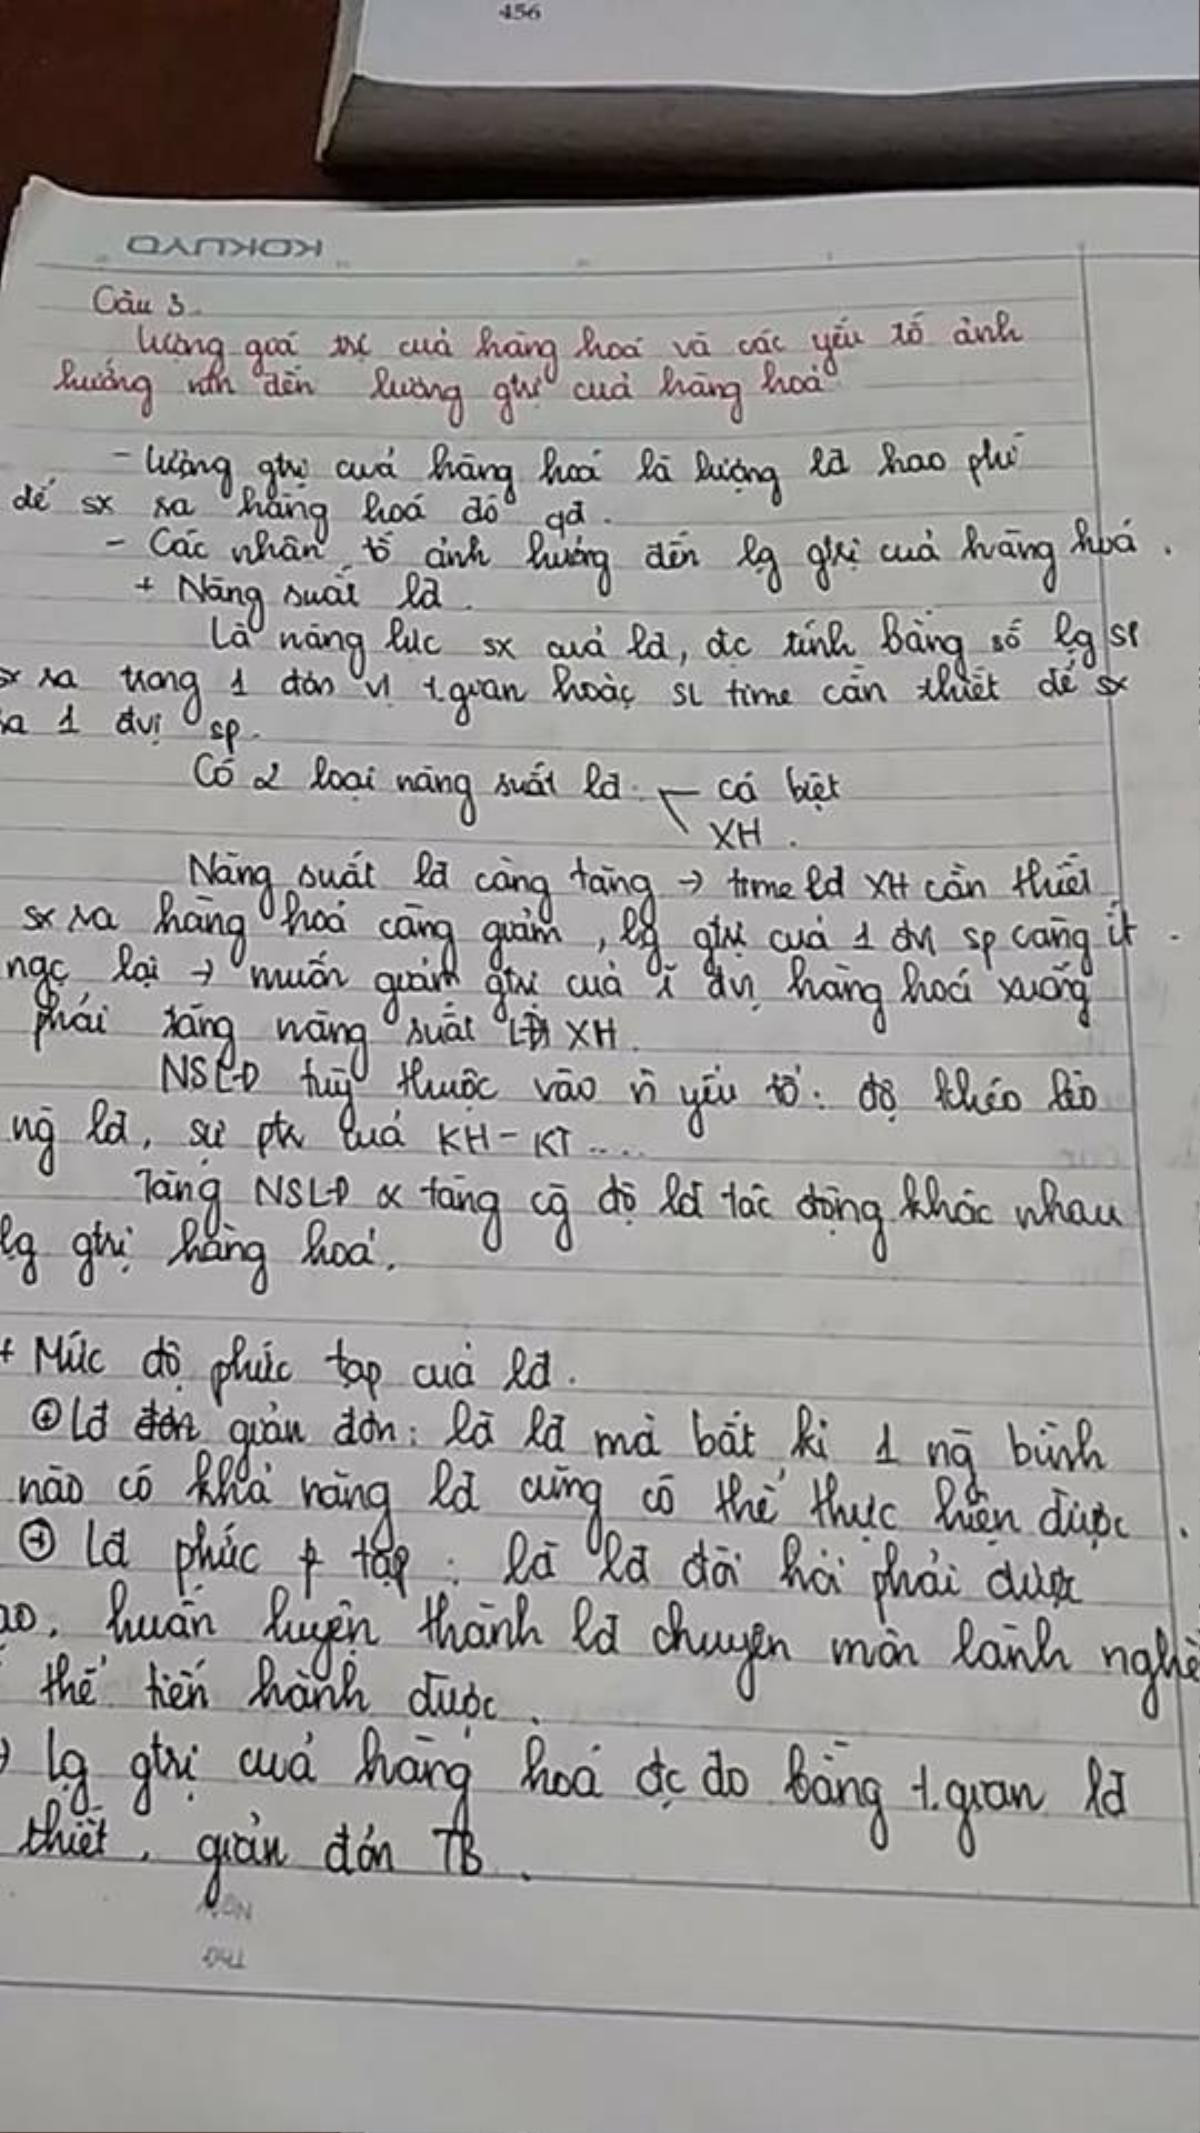 456
KOKUYO
Câu 3.
Lượng giá trị của hàng hoá và các yếu tố ảnh
hưởng đến lượng gtrị của hàng hoá
- Lượng gtrị của hàng hoá là lượng lđ hao phí
để sx ra hàng hoá đó qđ.
- Các nhân tố ảnh hưởng đến lg gtrị của hàng hoá.
+ Năng suất lđ.
Là năng lực sx của lđ, đc tính bằng số lg sp
sx ra trong 1 đơn vị t.gian hoặc SL time cần thiết để sx
ra 1 đvị sp.
Có 2 loại năng suất lđ: cá biệt
XH.
Năng suất lđ càng tăng → time lđ XH cần thiết
sx ra hàng hoá càng giảm, lg gtrị của 1 đvị sp càng ít.
ngc lại → muốn giảm gtrị của 1 đvị hàng hoá xuống
phải tăng năng suất LĐ XH.
NSLĐ tuỳ thuộc vào n̄ yếu tố: độ khéo léo
ng̃ lđ, sự ptr của KH-KT.....
Tăng NSLĐ & tăng cg̃ độ lđ tác động khác nhau
lg gtrị hàng hoá.
+ Mức độ phức tạp của lđ.
⊕ Lđ giản đơn: là lđ mà bất kì 1 ng̃ bình
nào có khả năng lđ cũng có thể thực hiện được.
⊕ Lđ phức tạp: là lđ đòi hỏi phải được
huấn luyện thành lđ chuyên môn lành nghề
thể tiến hành được.
Lg gtrị của hàng hoá đc đo bằng t.gian lđ
thiết, giản đơn TB.